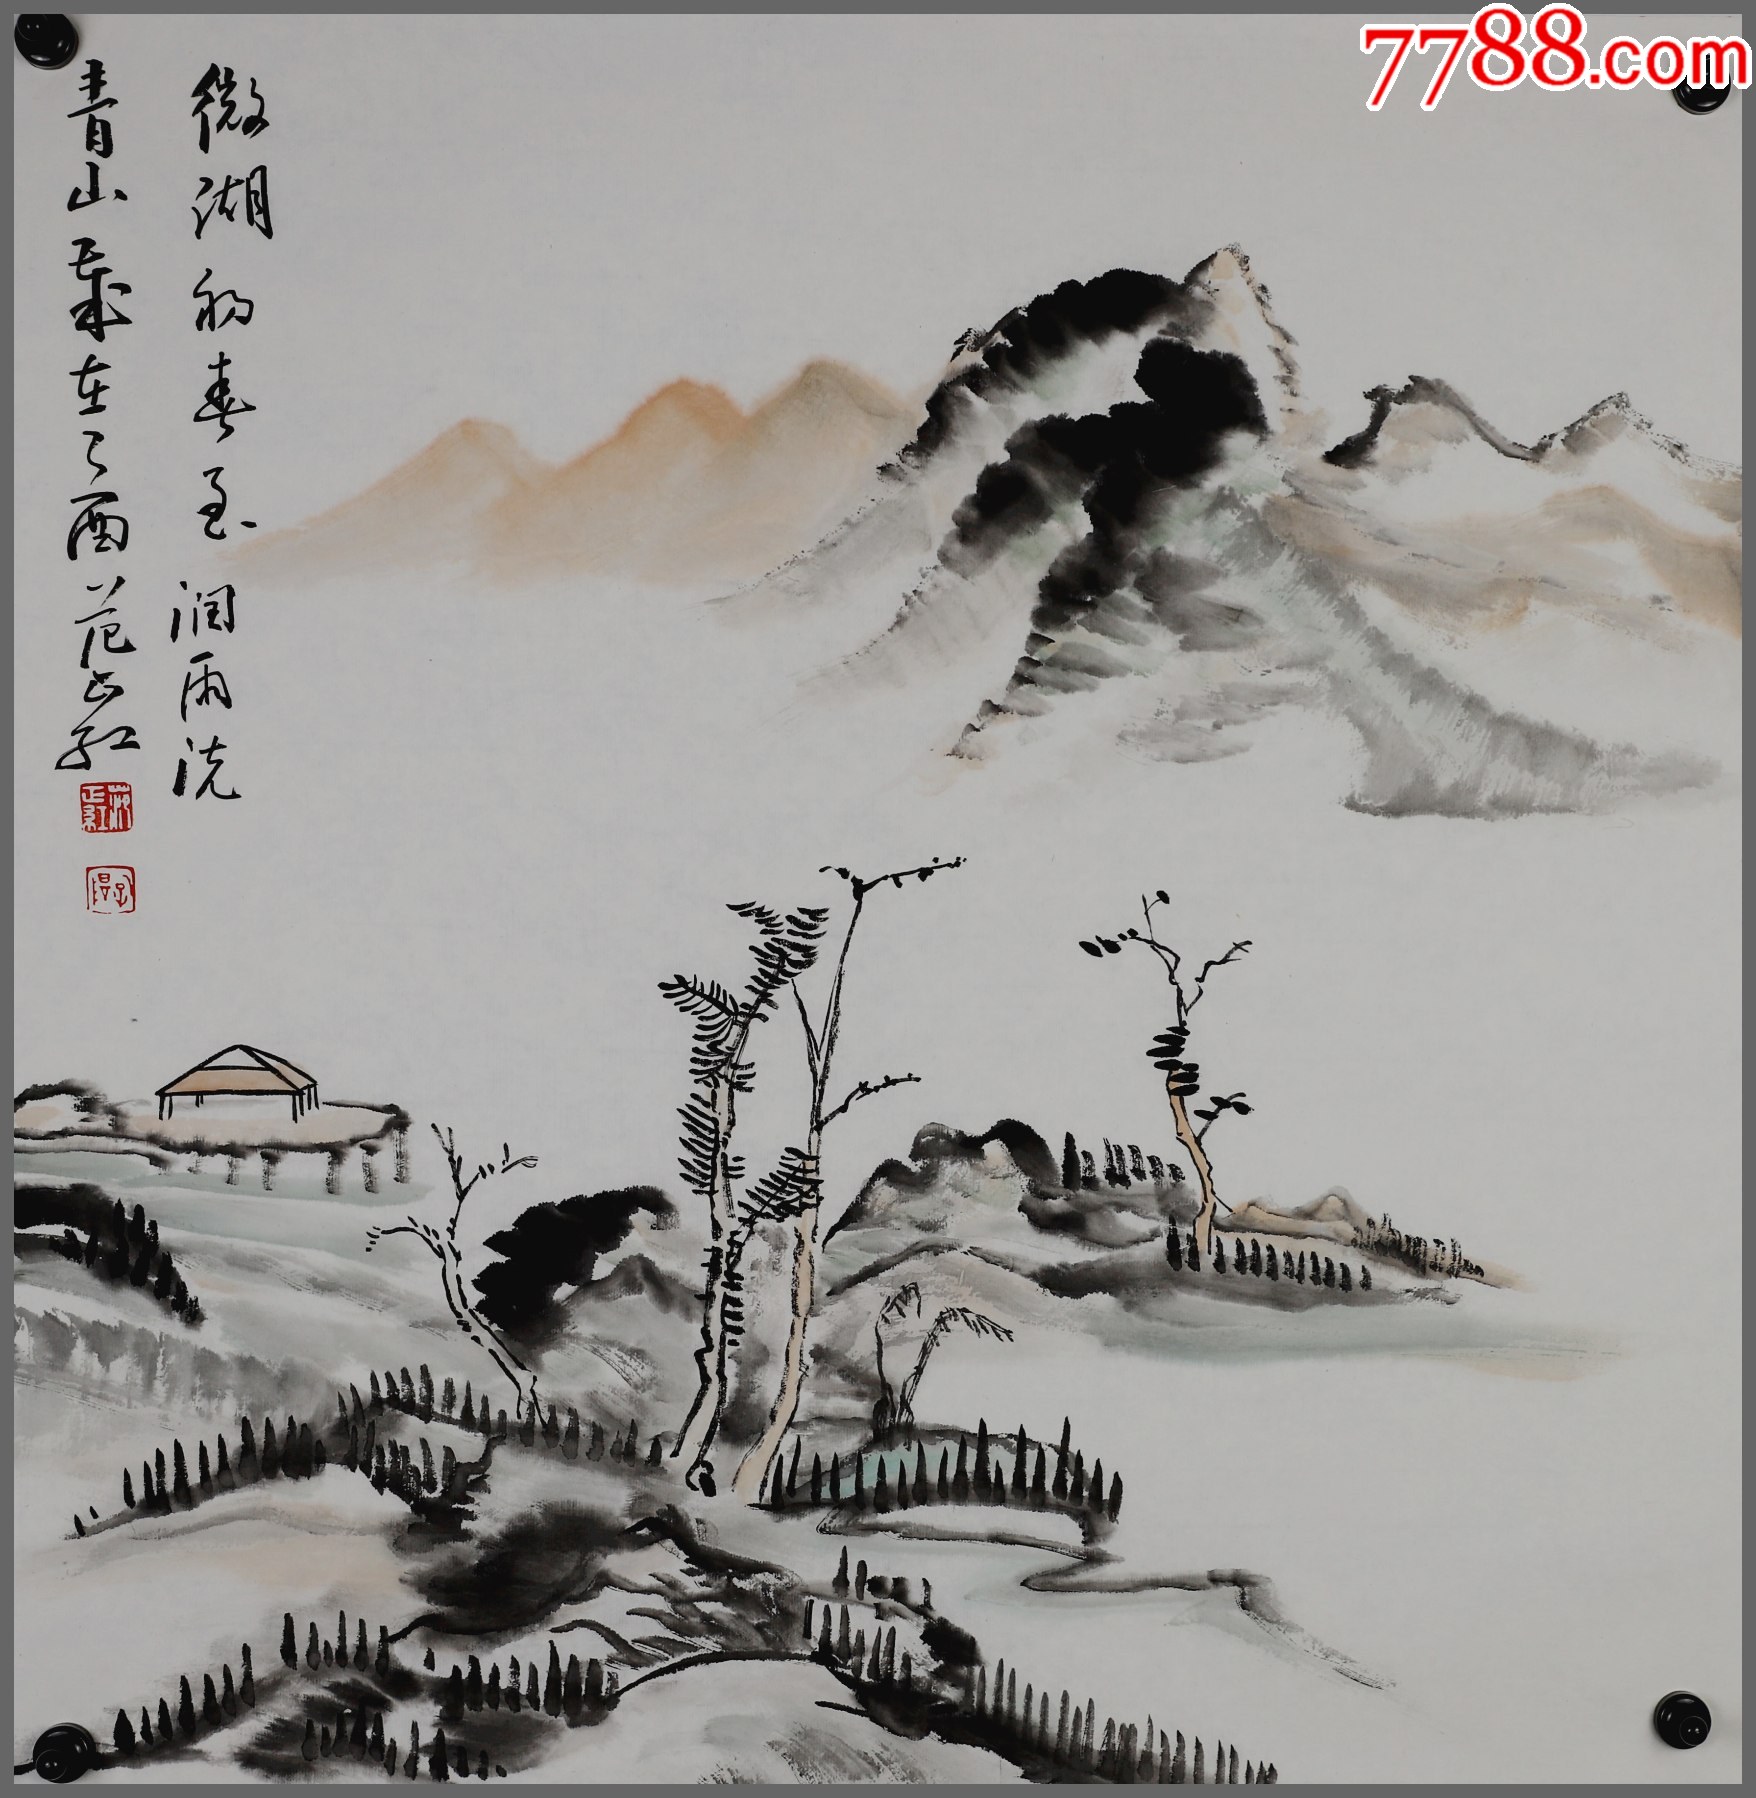 7788.com
微湖初春至润雨洗
青山歲在丁酉范正红
范正紅